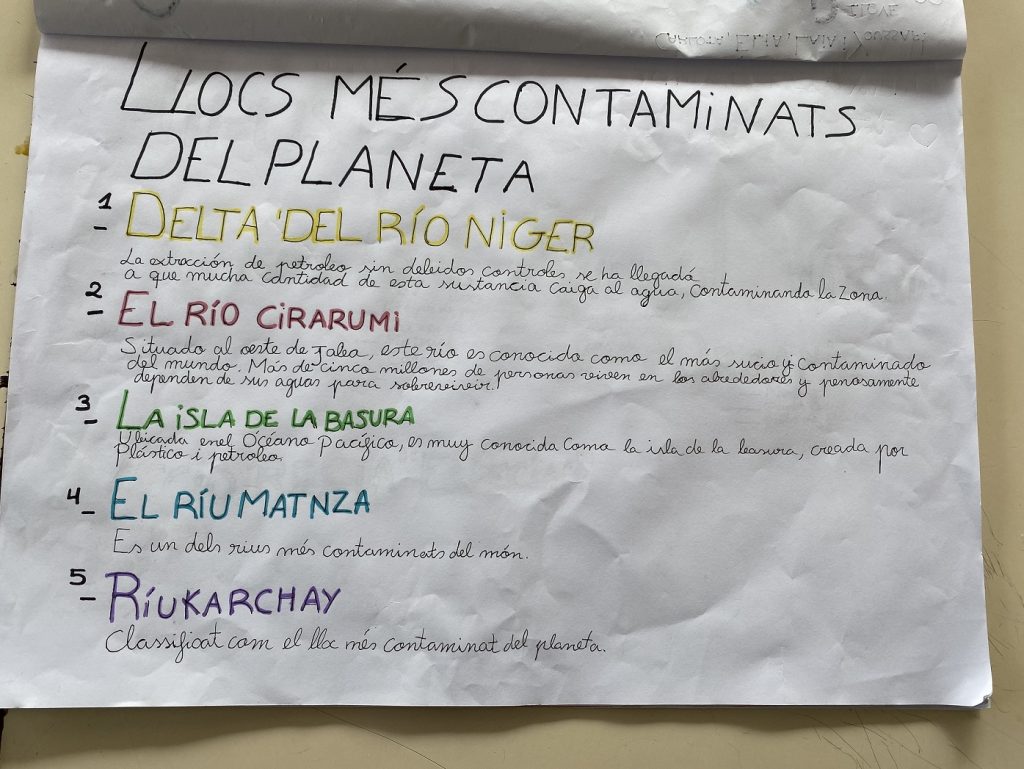 LLOCS MÉS CONTAMINATS
DEL PLANETA
1- DELTA 'DEL RÍO NIGER
La extracción de petroleo sin debidos controles se ha llegadá
a que mucha cantidad de esta sustancia caiga al agua, contaminando la zona.
2- EL RÍO CIRARUMI
Situado al oeste de Jalea, este río es conocido como el más sucio y contaminado
del mundo. Más de cinco millones de personas viven en los alrededores y penosamente
dependen de sus aguas para
3- LA ISLA DE LA BASURA
Ubicada en el Océano Pacífico, es muy conocida como la isla de la basura, creada por
Plástico i petroleo.
4- EL RÍU MATNZA
Es un dels rius més contaminats del món.
5- RÍU KARCHAY
Classificat com el lloc més contaminat del planeta.